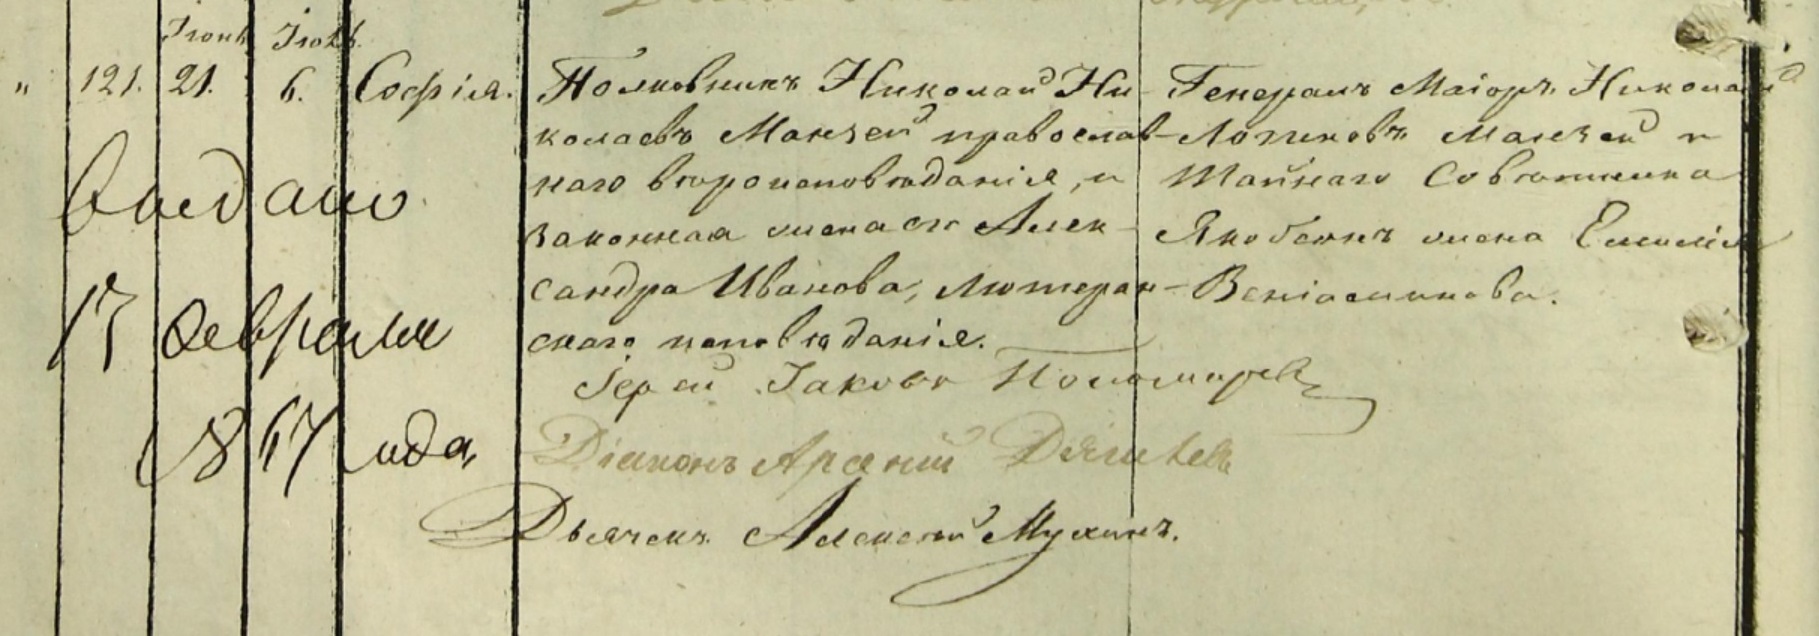 " 121. 21. 6. Софія.
Полковникъ Николай Ни-
колаевъ Манзей православ-
наго вѣроисповѣданія, и
законная жена его Алек-
сандра Иванова, лютеран-
скаго исповѣданія.
Генералъ Маіоръ Николай
Логиновъ Манзей и
Тайнаго Совѣтника
Якобсонъ жена Емилія
Веніаминова.
Выдано
17 Февраля
1867 года
Іерей Іаковъ Пономаревъ
Діаконъ Арсеній
Дьячекъ Алексей Мухинъ.